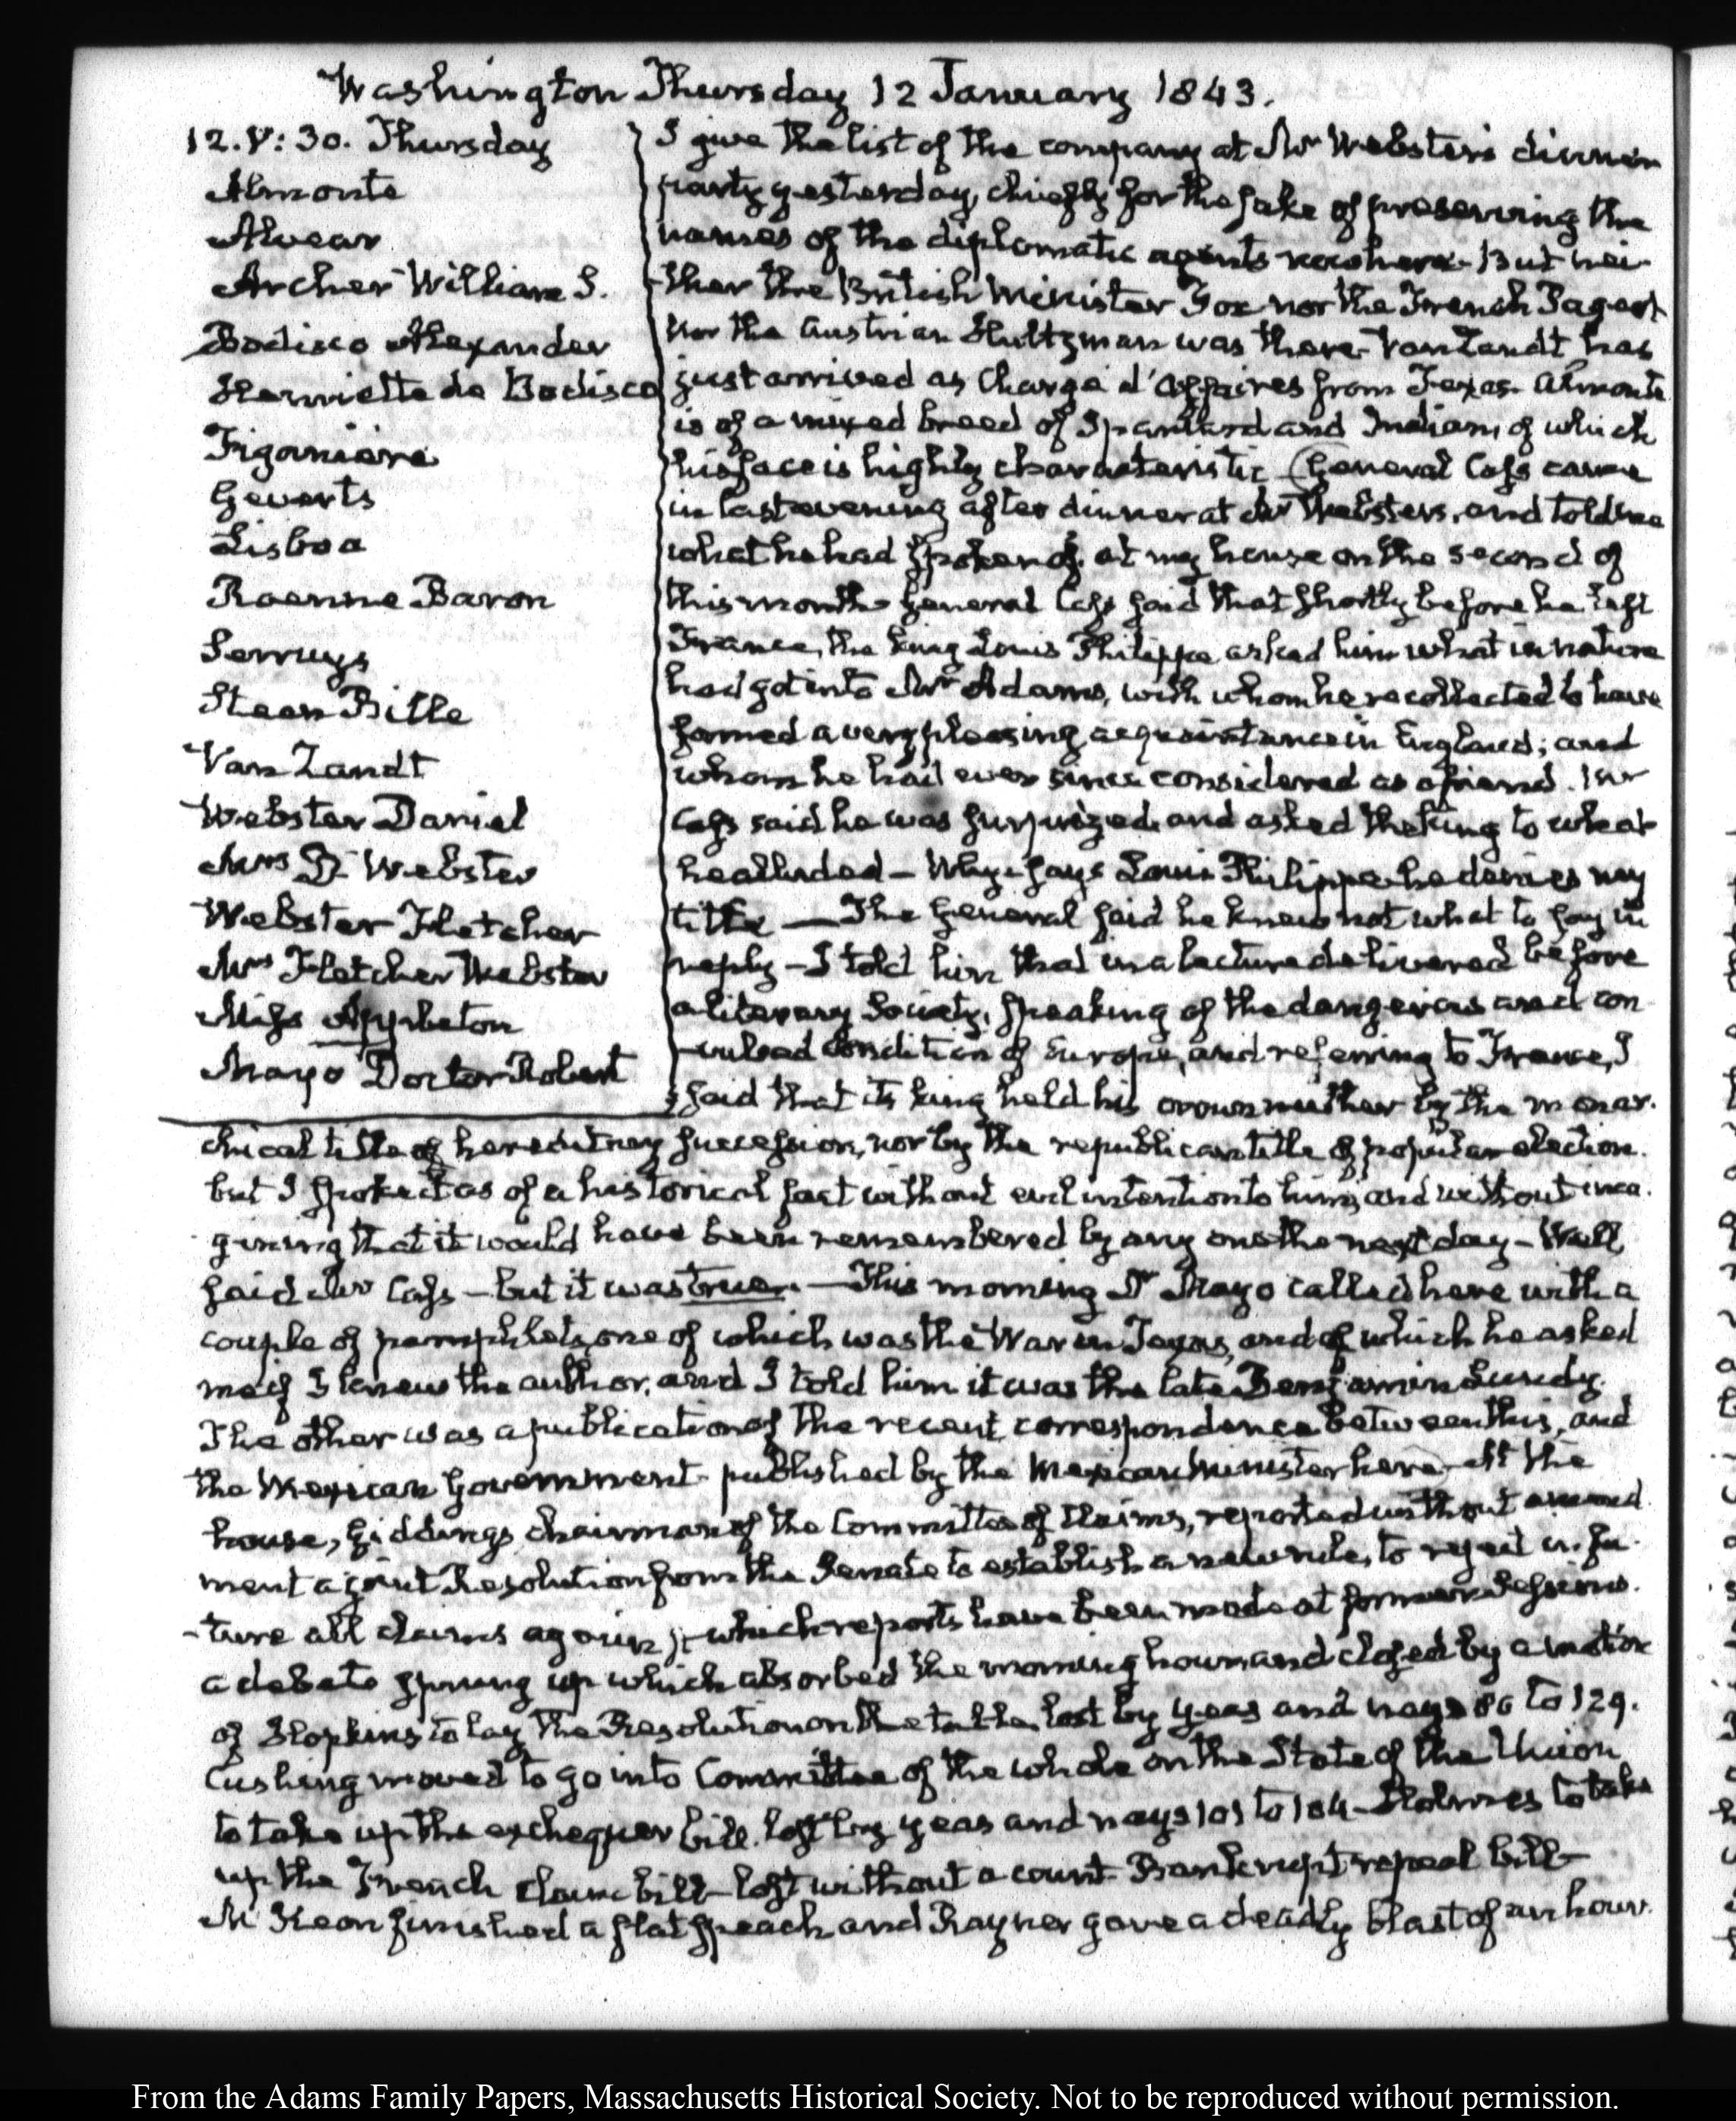 Washington Thursday 12 January 1843.
12. V: 30. Thursday
Almonte
Alvear
Archer William S.
Bodisco Alexander
Harriette de Bodisco
Figaniere
Gevers
Lisboa
Roenne Baron
Serruys
Steen Bille
Van Zandt
Webster Daniel
Mrs D Webster
Webster Fletcher
Mrs Fletcher Webster
Miss Appleton
Mayo Doctor Robert
I give the list of the company at Mr Webster's dinner
party yesterday, chiefly for the sake of preserving the
names of the diplomatic agents now here. But nei-
ther the British Minister Fox nor the French Pageot
nor the Austrian Hultzman was there. Van Zandt has
just arrived as Chargé d'Affaires from Texas. Almonte
is of a mixed breed of Spaniard and Indian, of which
his face is highly characteristic. General Cass came
in last evening after dinner at Mr Websters, and told me
what he had spoken of, at my house on the second of
this month. General Cass said that shortly before he left
France, the king Louis Philippe asked him what in nature
had got into Mr Adams, with whom he recollected to have
formed a very pleasing acquaintance in England; and
whom he had ever since considered as a friend. Mr
Cass said he was surprized, and asked the king to what
he alluded — Why, says Louis Philippe he denies my
title — The General said he knew not what to say in
reply — I told him that in a lecture delivered before
a literary Society, speaking of the dangerous and con
-vulsed condition of Europe, and referring to France, I
said that its king held his crown neither by the monar-
chical title of hereditary succession, nor by the republican title of popular election.
but I spoke it as of a historical fact without evil intention to him, and without ima-
gining that it would have been remembered by any one the next day — Well,
said Mr Cass — but it was true. — This morning Dr Mayo called here with a
couple of pamphlets, one of which was the War in Texas, and of which he asked
me if I knew the author, and I told him it was the late Benjamin Lundy.
The other was a publication of the recent correspondence between this, and
the Mexican Government published by the Mexican Minister here. At the
house, Giddings chairman of the Committee of Claims, reported without amend-
ment a joint Resolution from the Senate to establish a new rule, to reject in fu-
-ture all claims against which reports have been made at former Sessions.
a debate sprung up which absorbed the morning hour and closed by a motion
of Hopkins to lay the Resolution on the table, lost by yeas and nays 80 to 129.
Cushing moved to go into Committee of the whole on the State of the Union
to take up the exchequer bill. lost by yeas and nays 101 to 104 — Holmes to take
up the French claim bill — lost without a count. Bankrupt repeal bill —
McKeon finished a flat speech and Rayner gave a deadly blast of an hour.
From the Adams Family Papers, Massachusetts Historical Society. Not to be reproduced without permission.